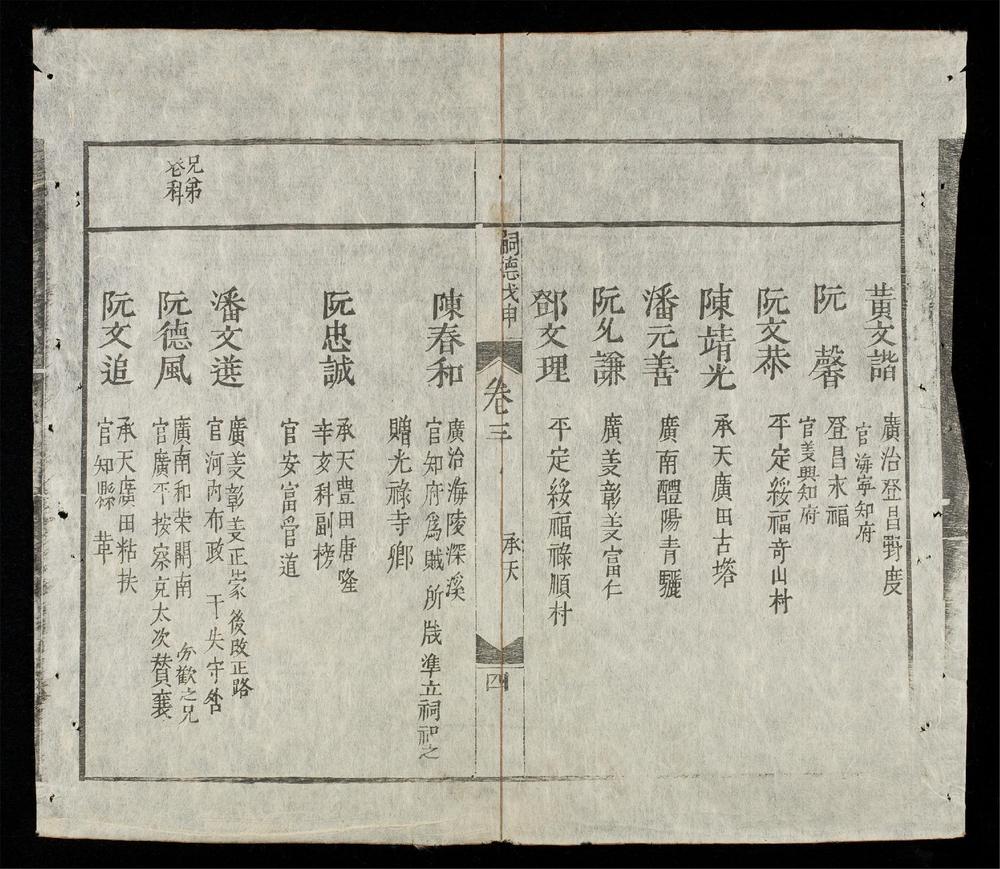 黃文諧
廣治登昌對度
官海寧知府
阮馨
登昌永福
官美興知府
阮文恭
平定綏福奇山村
陳靖光
承天廣田古塔
潘元善
廣南醴陽青驪
阮允謙
廣義彰義富仁
鄧文理
平定綏福祿順村
嗣德戊申
卷三
承天
四
陳春和
廣治海陵深溪
官知府為賊所戕準立祠祀之
贈光祿寺卿
阮忠誠
承天豊田唐隆
辛亥科副榜
官安富管道
潘文選
廣義彰義正蒙後改正路
官河內布政干失守
兄弟
仝科
阮德風
廣南和荣關南勿歡之兄
官廣平按察克太次賛襄
阮文追
承天廣田粘扶
官知縣革